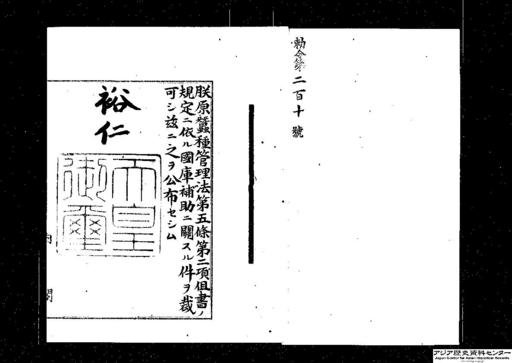 勅令第二百十號
朕原蠶種管理法第五條第二項但書ノ
規定ニ依ル國庫補助ニ關スル件ヲ裁
可シ茲ニ之ヲ公布セシム
裕仁
天皇
御璽
内閣
アジア歴史資料センター
Japan Center for Asian Historical Records